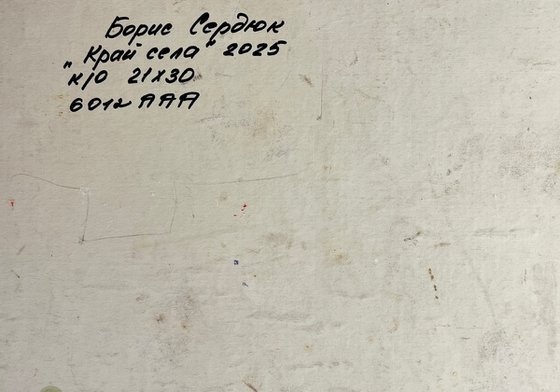 Борис Сердюк
„Край села“ 2025
к/о 21х30
6012 ААА